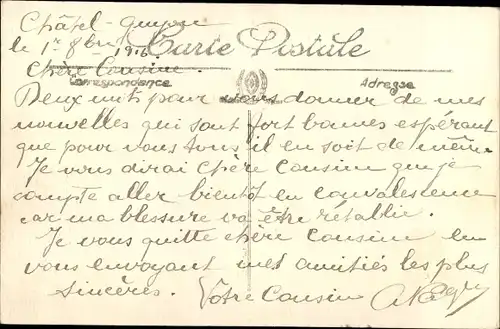 Châtel-Guyon
le 1er 8bre 1916.
Carte Postale
Chère Cousine.
Correspondance
Adresse
Deux mots pour vous donner de mes
nouvelles qui sont fort bonnes espérant
que pour vous tous il en soit de même
Je vous dirai chère Cousine que je
compte aller bientôt en convalescence
car ma blessure va être rétablie.
Je vous quitte chère Cousine en
vous envoyant mes amitiés les plus
sincères. Votre Cousin